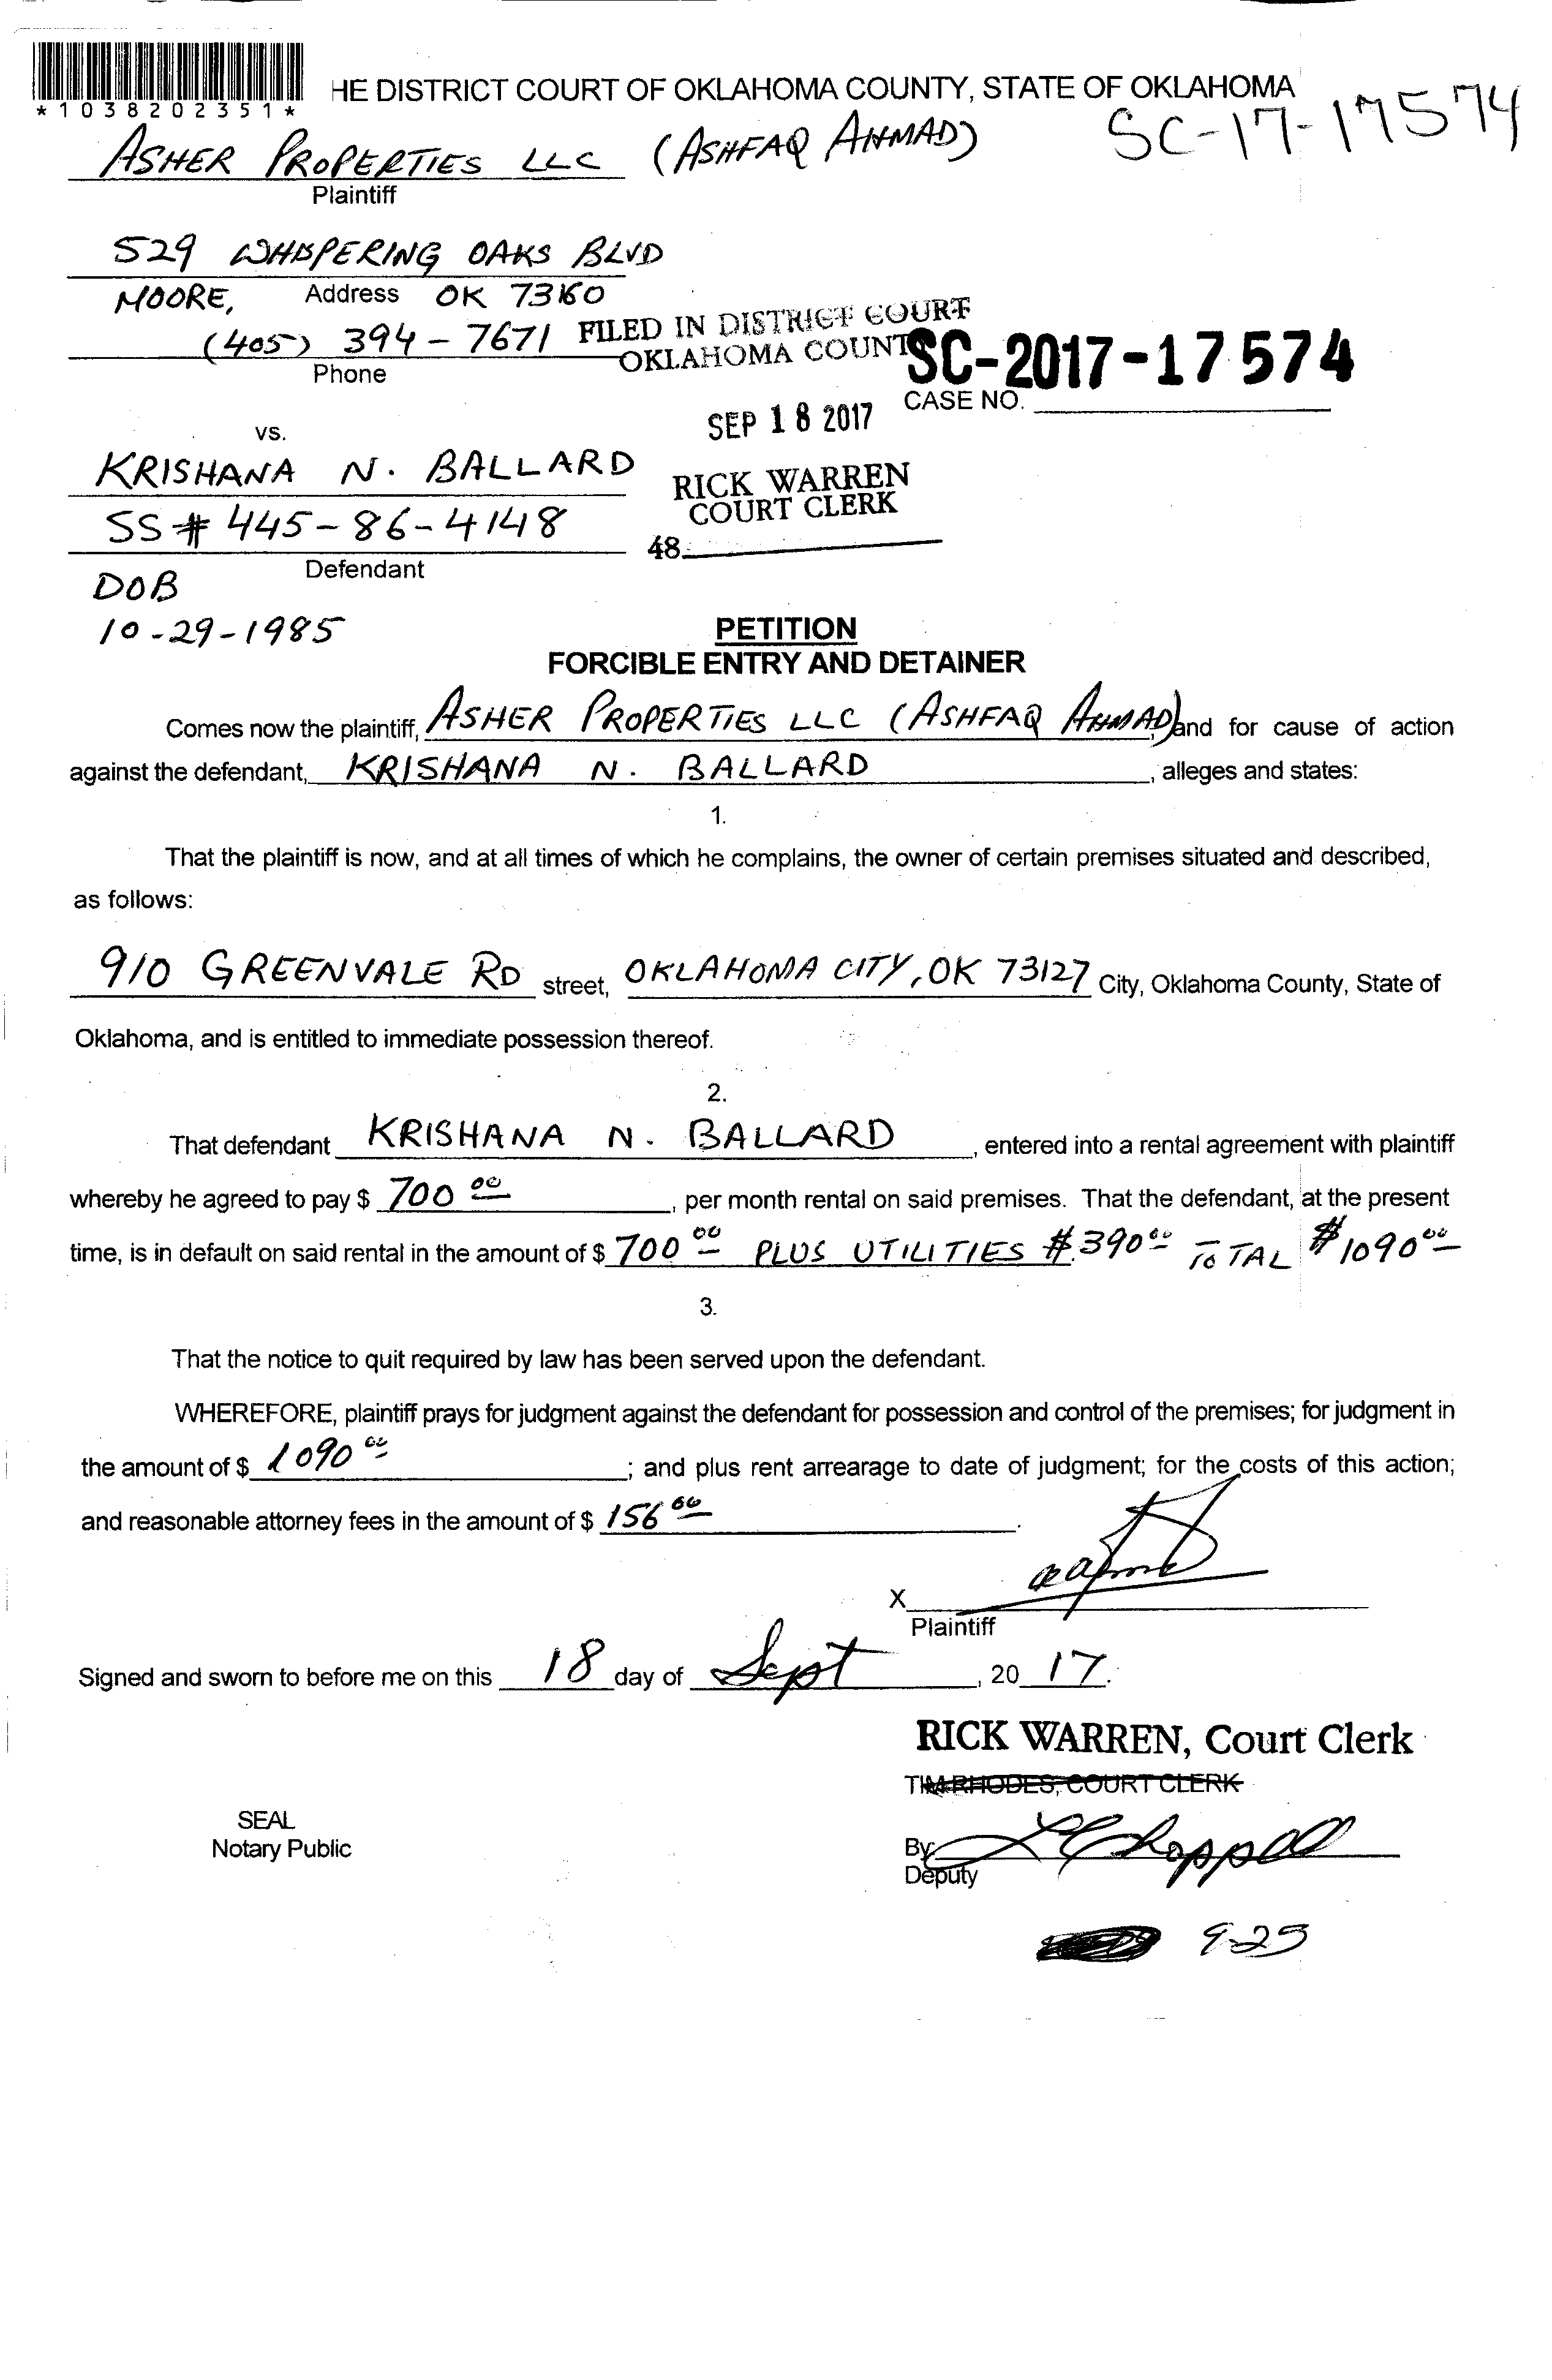 HE DISTRICT COURT OF OKLAHOMA COUNTY, STATE OF OKLAHOMA
*1038202351*
SC-17-17574
ASHER PROPERTIES LLC (ASHFAQ AHMAD)
Plaintiff
529 WHISPERING OAKS BLVD
MOORE, Address OK 73160
(405) 394-7671 FILED IN DISTRICT COURT
OKLAHOMA COUNT SC-2017-17574
Phone
CASE NO.
SEP 18 2017
vs.
KRISHANA N. BALLARD
RICK WARREN
COURT CLERK
SS# 445-86-4148
48
Defendant
DOB
10-29-1985
PETITION
FORCIBLE ENTRY AND DETAINER
Comes now the plaintiff, ASHER PROPERTIES LLC (ASHFAQ AHMAD) and for cause of action
against the defendant, KRISHANA N. BALLARD, alleges and states:
1.
That the plaintiff is now, and at all times of which he complains, the owner of certain premises situated and described,
as follows:
910 GREENVALE RD street, OKLAHOMA CITY, OK 73127 City, Oklahoma County, State of
Oklahoma, and is entitled to immediate possession thereof.
2.
That defendant KRISHANA N. BALLARD, entered into a rental agreement with plaintiff
whereby he agreed to pay $ 700 00, per month rental on said premises. That the defendant, at the present
time, is in default on said rental in the amount of $ 700 00 PLUS UTILITIES $390 00 TOTAL $1090 00
3.
That the notice to quit required by law has been served upon the defendant.
WHEREFORE, plaintiff prays for judgment against the defendant for possession and control of the premises; for judgment in
the amount of $ 1090 00; and plus rent arrearage to date of judgment; for the costs of this action;
and reasonable attorney fees in the amount of $ 156 00.
X
Plaintiff
Signed and sworn to before me on this 18 day of Sept, 20 17.
RICK WARREN, Court Clerk
TIM RHODES, COURT CLERK
SEAL
Notary Public
By
Deputy
9-25